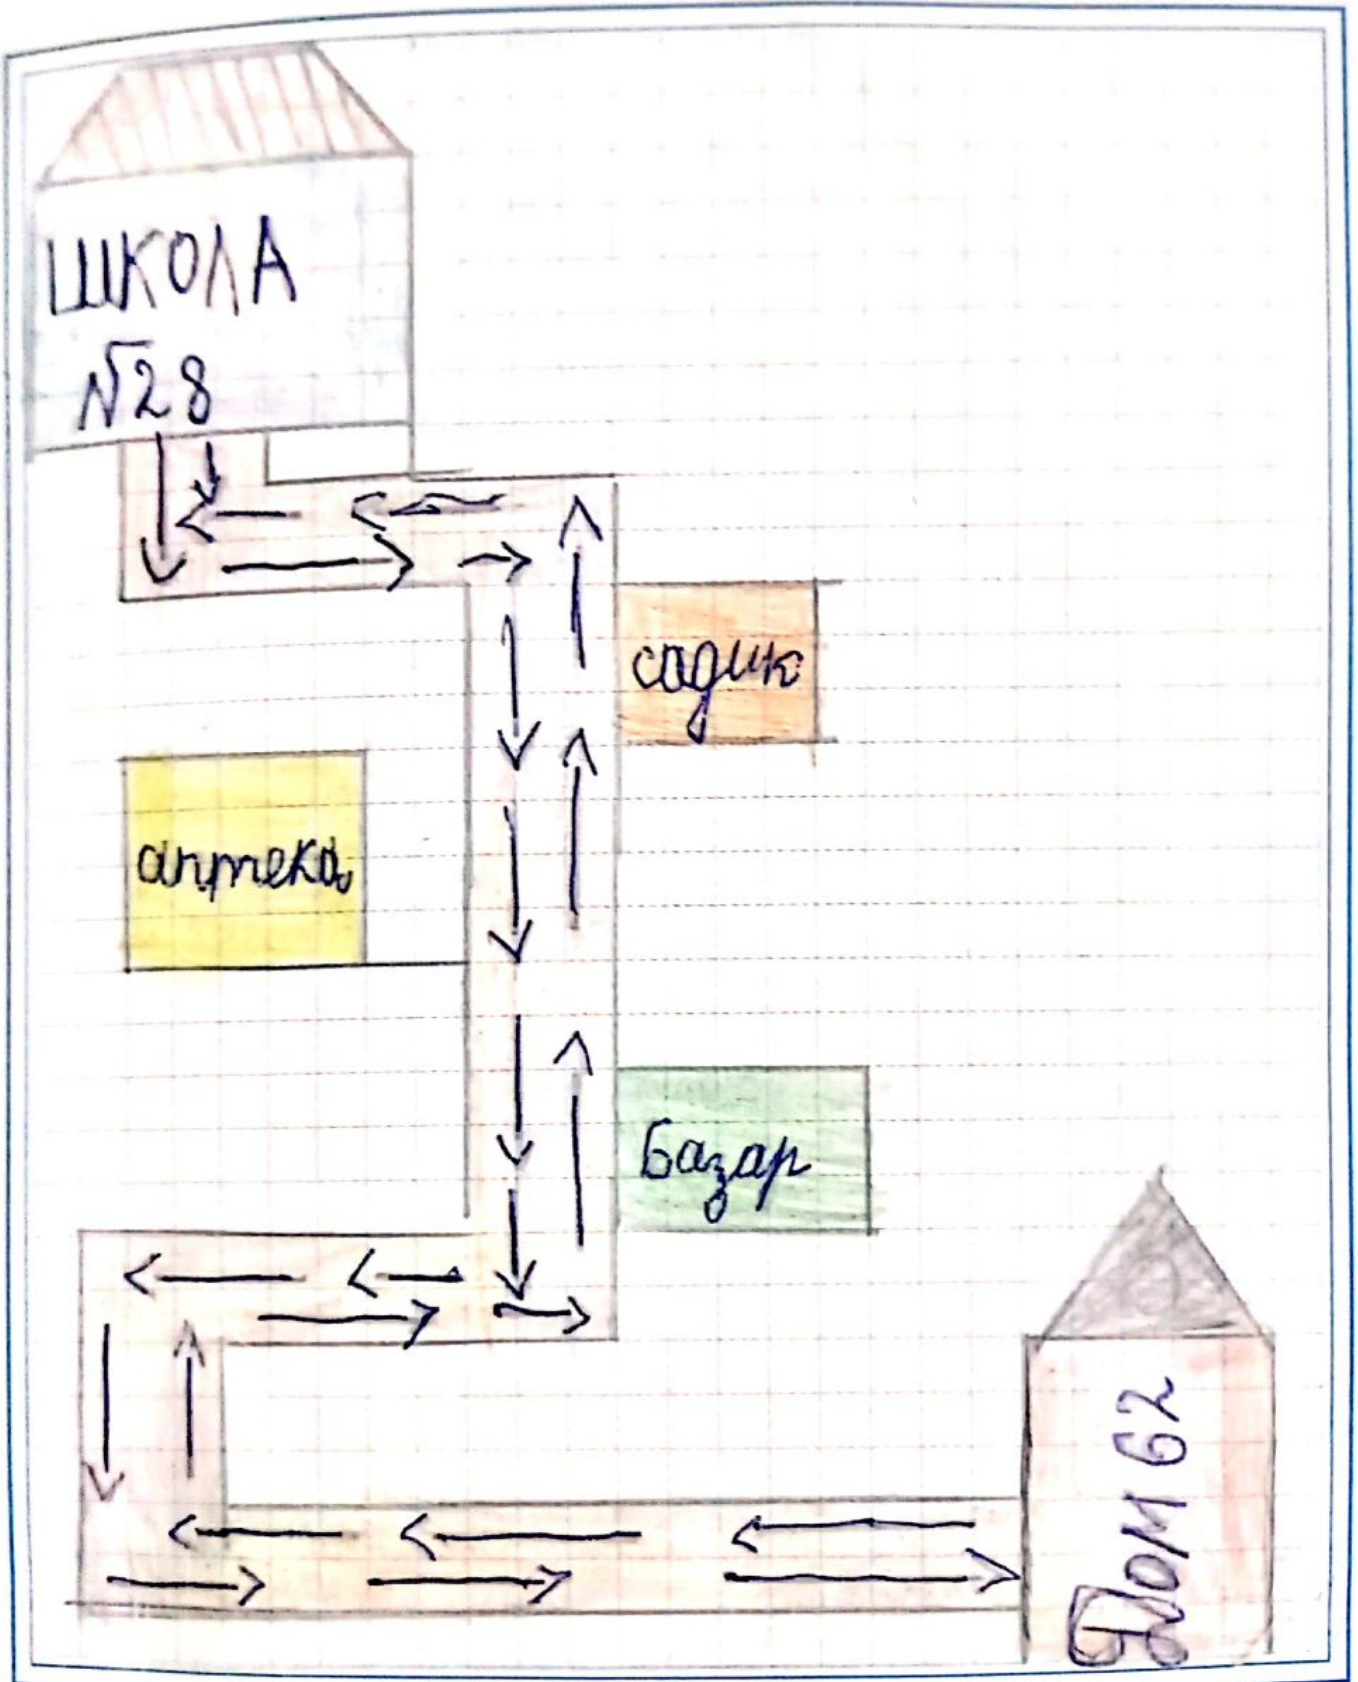 ШКОЛА
№28
садик
аптека
Базар
Дом 62